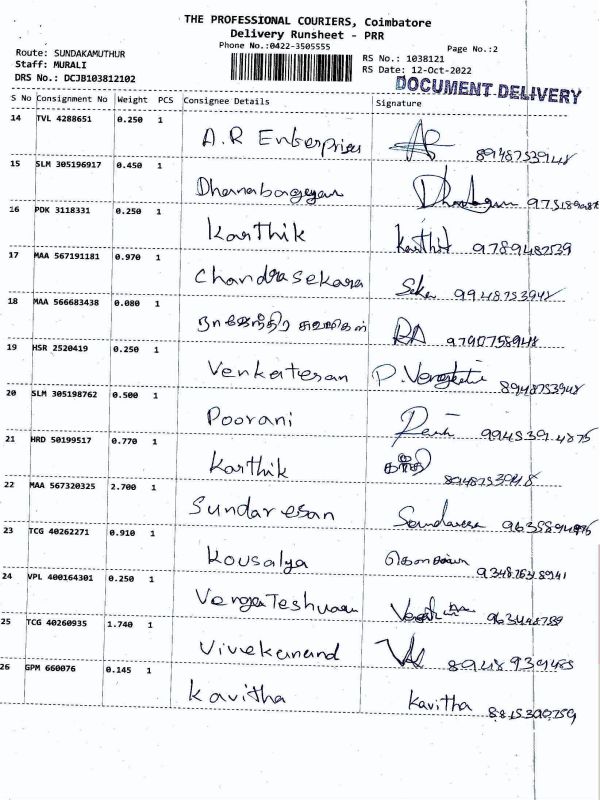 THE PROFESSIONAL COURIERS, Coimbatore
Delivery Runsheet - PRR
Phone No.:0422-3505555
Page No.:2
Route: SUNDAKAMUTHUR
Staff: MURALI
DRS No.: DCJB103812102
RS No.: 1038121
RS Date: 12-Oct-2022
DOCUMENT DELIVERY
S No Consignment No Weight PCS Consignee Details Signature
14 TVL 4288651 0.250 1
A.R Enterprises 8948753948
15 SLM 305196917 0.450 1
16 PDK 3118331 0.250 1
Karthik Karthik 9789482539
17 MAA 567191181 0.970 1
Chandrasekara Seka 9948753948
18 MAA 566683438 0.080 1
9790758948
19 HSR 2520419 0.250 1
Venkatesan 8948753948
20 SLM 305198762 0.500 1
Poorani
21 HRD 50199517 0.770 1
Karthik 8948753948
22 MAA 567320325 2.700 1
Sundaresan
23 TCG 40262271 0.910 1
Kousalya கௌசல்யா
24 VPL 400164301 0.250 1
25 TCG 40260935 1.740 1
Vivekanand 8948939485
26 GPM 660076 0.145 1
Kavitha Kavitha